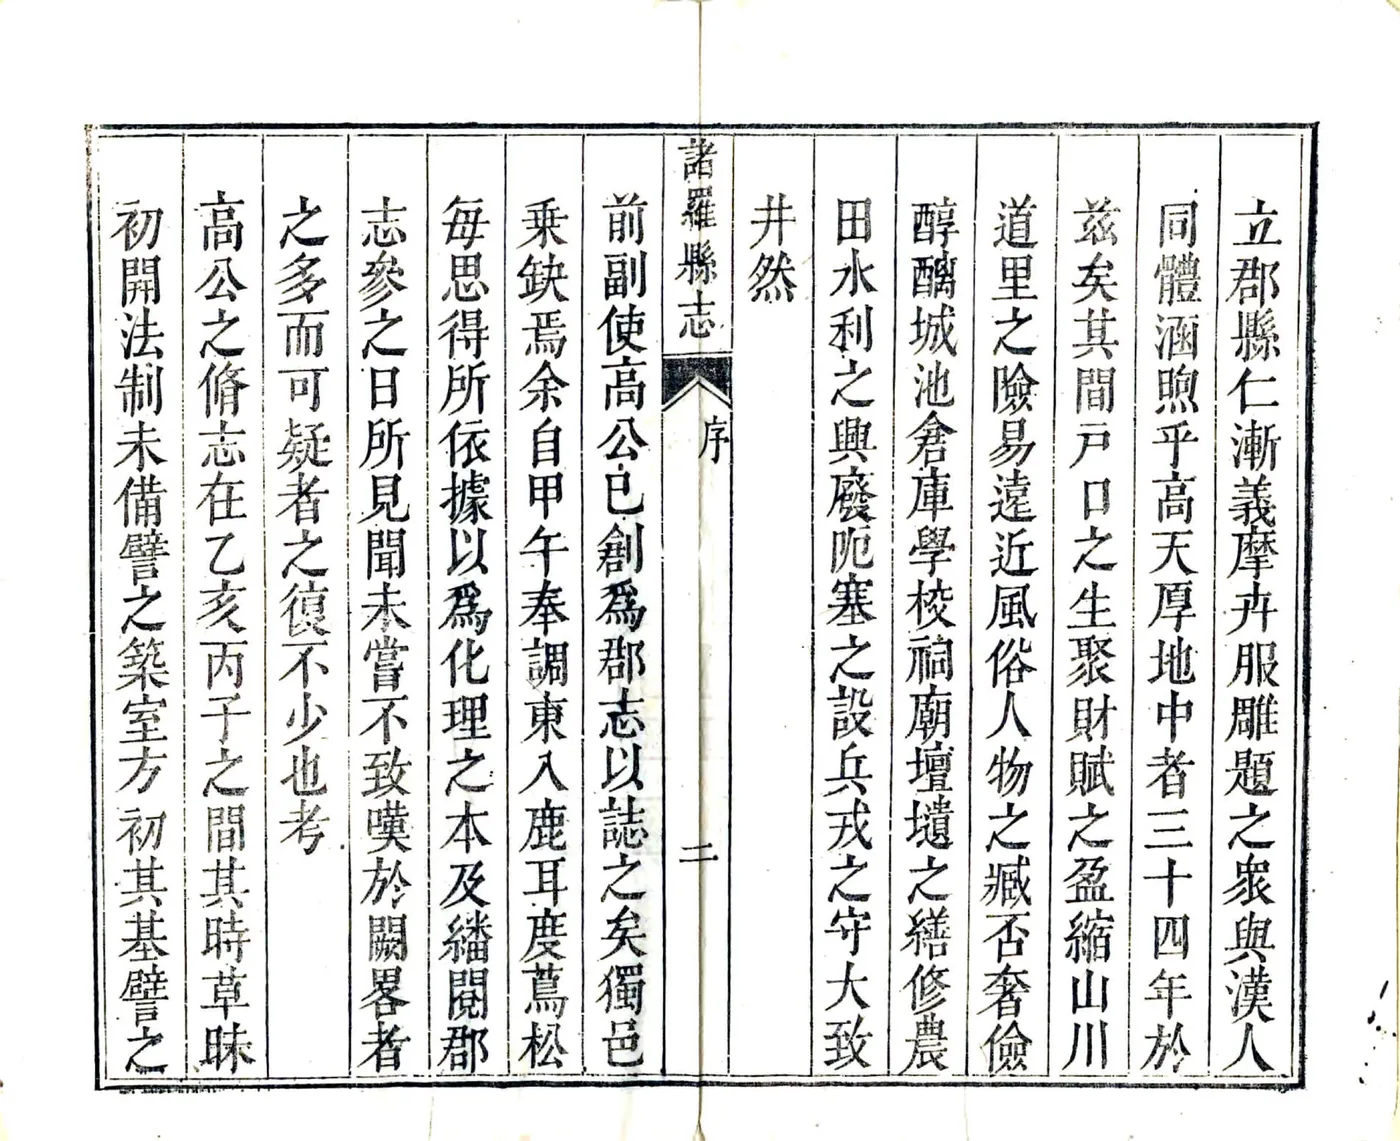 立郡縣仁漸義摩卉服雕題之衆與漢人
同體涵煦乎高天厚地中者三十四年於
兹矣其間戸口之生聚財賦之盈縮山川
道里之險易遠近風俗人物之臧否奢儉
醇醨城池倉庫學校祠廟壇壝之繕修農
田水利之興廢阨塞之設兵戎之守大致
井然
諸羅縣志
序
二
前副使高公已創爲郡志以誌之矣獨邑
乗缺焉余自甲午奉調東入鹿耳度蔦松
毎思得所依據以爲化理之本及繙閱郡
志參之日所見聞未嘗不致嘆於闕畧者
之多而可疑者之復不少也考
高公之脩志在乙亥丙子之間其時草昧
初開法制未備譬之築室方初其基譬之